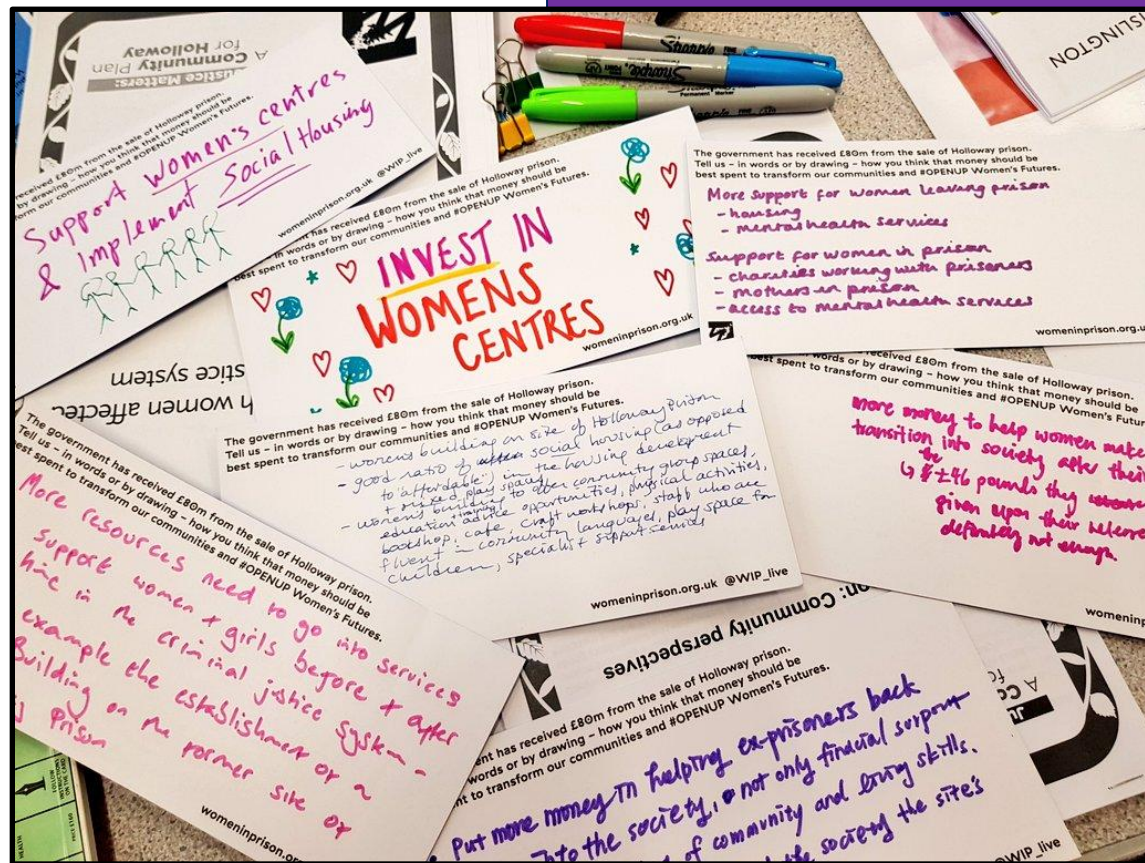 A Community Plan
for Holloway
Justice Matters:
received £80m from the sale of Holloway prison.
by drawing – how you think that money should be
form our communities and #OPENUP Women's Futures.
Support women's centres
& Implement Social Housing
womeninprison.org.uk @WIP_live
has received £80m from the sale of Holloway prison.
in words or by drawing – how you think that money should be
best spent to transform our communities and #OPENUP Women's Futures.
INVEST IN
WOMENS
CENTRES
womeninprison.org.uk
Sharpie
Sharpie
SLINGTON
The government has received £80m from the sale of Holloway prison.
Tell us – in words or by drawing – how you think that money should be
best spent to transform our communities and #OPENUP Women's Futures.
More support for women leaving prison
- housing
- mental health services
Support for women in prison
- charities working with prisoners
- mothers in prison
- access to mental health services
womeninprison.org.u
h women affected
stice system
The government has received £80m from the sale of Holloway prison.
Tell us – in words or by drawing – how you think that money should be
best spent to transform our communities and #OPENUP Women's Futures.
- womens building on site of Holloway Prison
- good ratio of social housing (as opposed
to 'affordable') in the housing development
+ mixed play spaces
- womens building to offer community group spaces,
education + training advice opportunities, physical activities,
bookshop, cafe, craft workshops, staff who are
fluent in community languages, play space for
children, specialist support services
womeninprison.org.uk @WIP_live
received £80m from the sale of Holloway prison.
words or by drawing – how you think that money should be
best spent to transform our communities and #OPENUP Women's Futur
more money to help women make
transition into society after their
the £46 pounds they
given upon their release
definitely not enough
womeninp
The government has received £80m from the sale of Holloway prison.
Tell us – in words or by drawing – how you think that money should be
best spent to transform our communities and #OPENUP Women's Futures.
More resources need to go into services
support women + girls before + after
time in the criminal justice system -
example the establishment of a
Building on the former site of
Prison
womeninprison.or
on: Community perspectives
ent has received £80m from the sale of Holloway prison.
words or by drawing – how you think that money should be
nt to transform our communities and #OPENUP Women's Futures.
Put more money in helping ex-prisoners back
into the society, not only financial support
of community and living skills.
the society the site's
@WIP_live
FOLLOW
INSTRUCTIONS
ON THE CARD